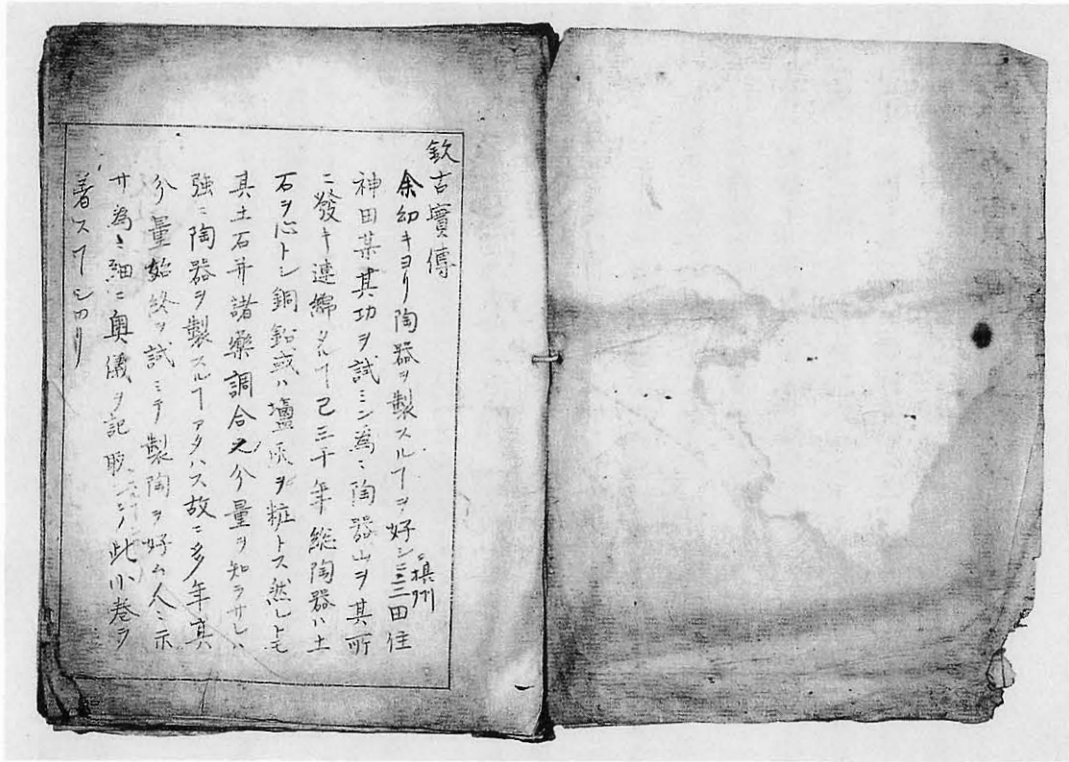 欽古實傳
余幼キヨリ陶器ヲ製スルヿヲ好シニ摂州三田住
神田某其功ヲ試ミン為ニ陶器山ヲ其所
ニ發キ連綿タルヿ已三十年総陶器ハ土
石ヲ心トシ銅鉛或ハ塩灰ヲ粧トス然レトモ
其土石并諸藥調合之分量ヲ知ラサレハ
強ニ陶器ヲ製スルヿアタハス故ニ多年其
分量始終ヲ試ミテ製陶ヲ好ム人ニ示
サ為ニ細ニ奥儀ヲ記 此小巻ヲ
著スヿシカリ